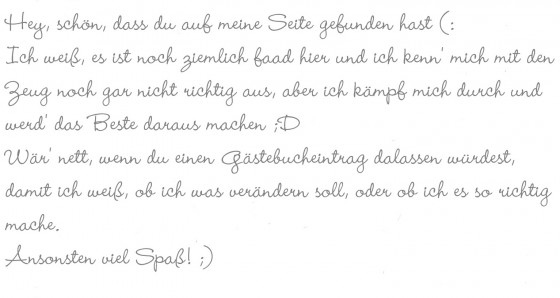 Hey, schön, dass du auf meine Seite gefunden hast (:
Ich weiß, es ist noch ziemlich faad hier und ich kenn' mich mit den
Zeug noch gar nicht richtig aus, aber ich kämpf mich durch und
werd' das Beste daraus machen ;D
Wär' nett, wenn du einen Gästebucheintrag dalassen würdest,
damit ich weiß, ob ich was verändern soll, oder ob ich es so richtig
mache.
Ansonsten viel Spaß! ;)